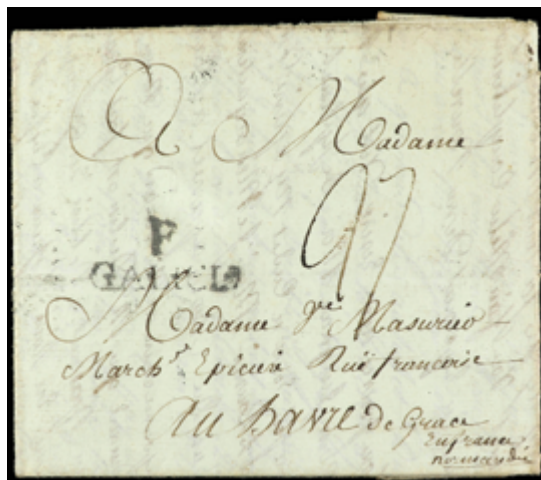 A Madame
27
F
GALICIA
Madame Vve Masurier
Marchde Epiciere Ruë francoise
au havre de Grace
En france
normandie